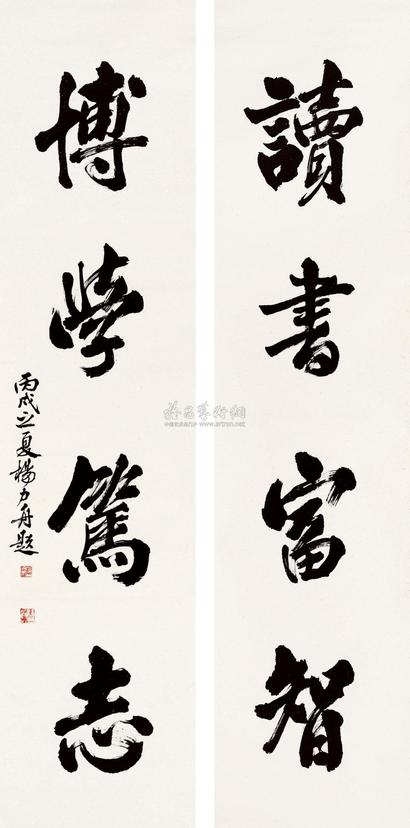 讀書富智
博學篤志
丙戌之夏楊力舟題
www.artron.net